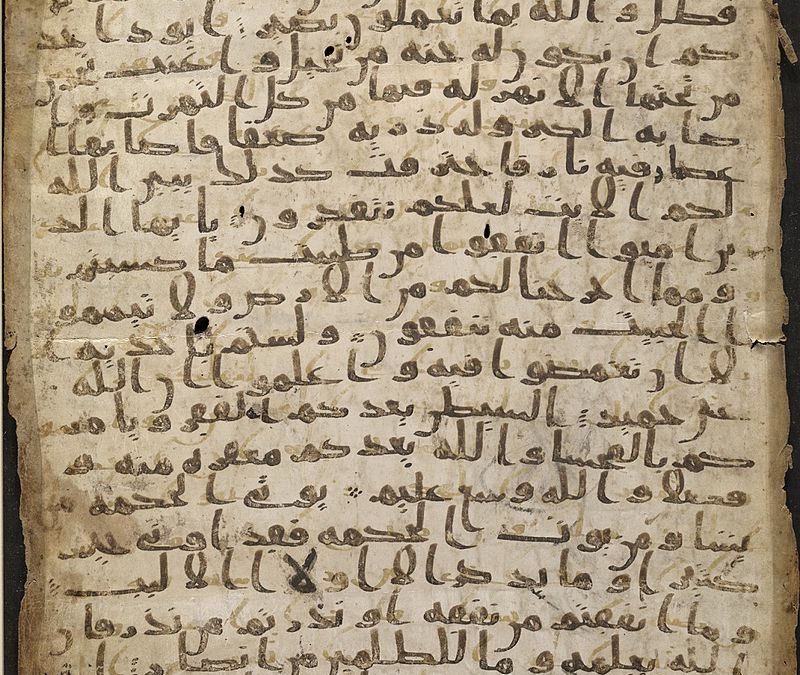 فطل و الله بما تعملون بصير ايود احد
كم ان تكون له جنه من نخيل و اعنب تجري
من تحتها الانهر له فيها من كل الثمرت و ا
صابه الكبر و له ذريه ضعفا فاصابها ا
عصار فيه نار فاحترقت كذلك يبين الله
لكم الايت لعلكم تتفكرون يايها الذ
ين امنوا انفقوا من طيبت ما كسبتم
و مما اخرجنا لكم من الارض و لا تيممو
ا الخبيث منه تنفقون و لستم باخذيه ا
لا ان تغمضوا فيه و اعلموا ان الله
غني حميد الشيطن يعدكم الفقر و يامر
كم بالفحشا و الله يعدكم مغفره منه و
فضلا و الله وسع عليم يوتي الحكمه من
يشا و من يوت الحكمه فقد اوتي خير
كثيرا و ما يذكر الا اولا الالبب
و ما انفقتم من نفقه او نذرتم من نذر فان
الله يعلمه و ما للظلمين من انصار